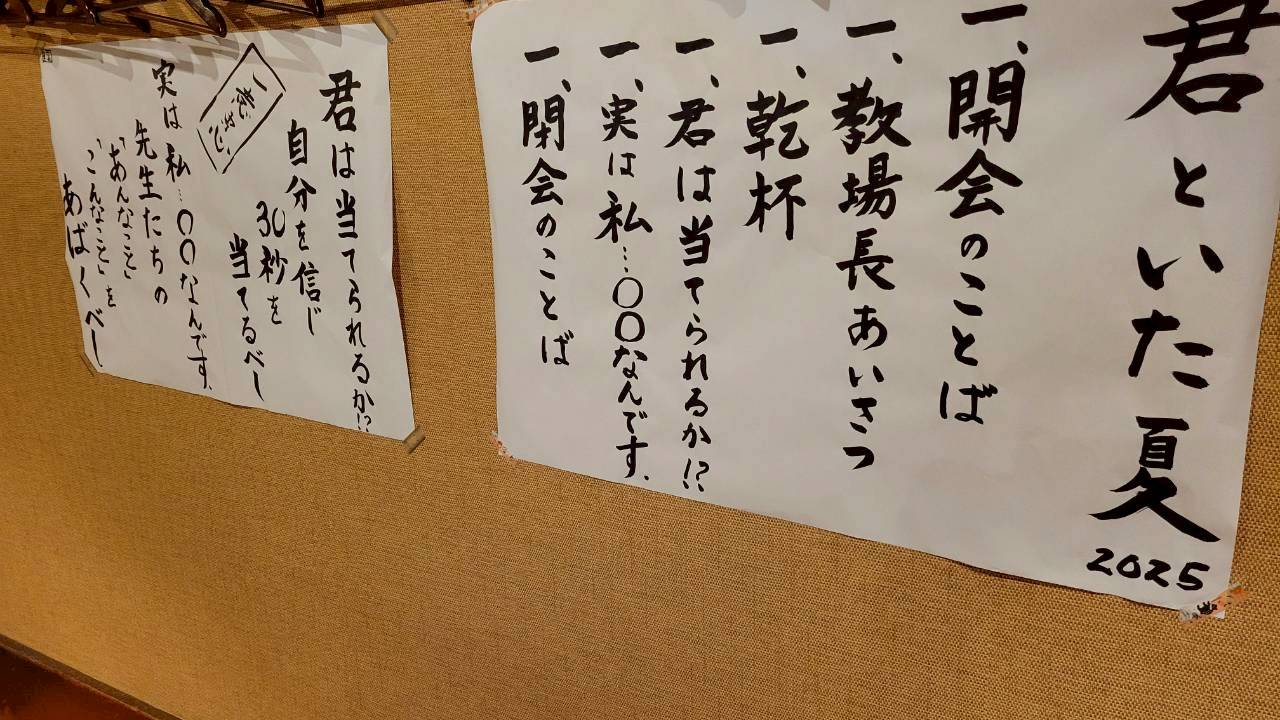 君といた夏
2025
一、開会のことば
一、教場長あいさつ
一、乾杯
一、君は当てられるか!?
一、実は私…〇〇なんです、
一、閉会のことば
君は当てられるか!?
自分を信じ
30秒を
当てるべし
実は私…〇〇なんです、
先生たちの
"あんなこと"
"こんなこと"を
あばくべし